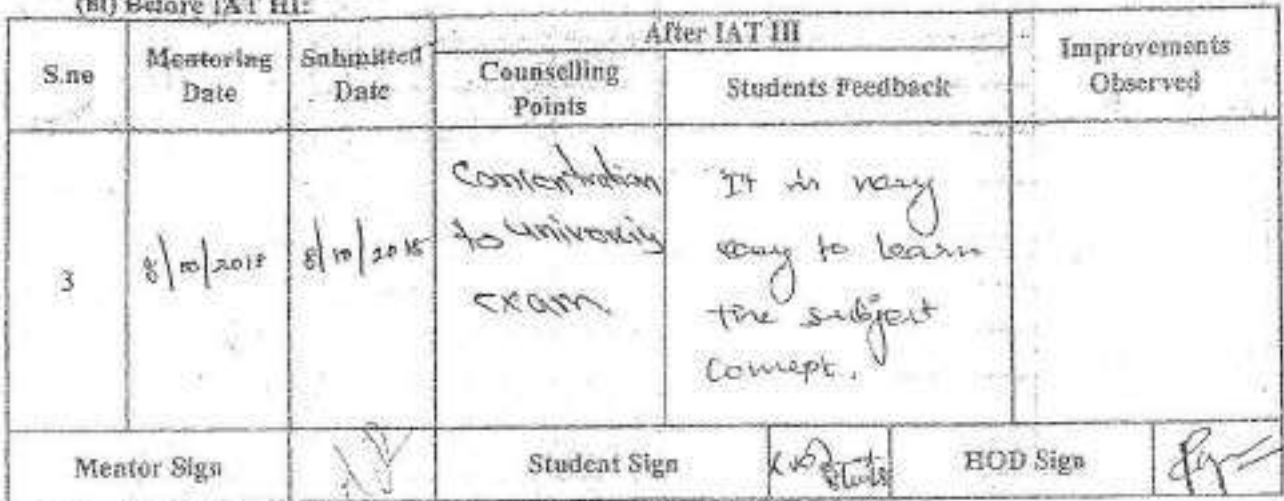 (iii) Before IAT III:
S.no
Mentoring Date
Submitted Date
After IAT III
Counselling Points
Students Feedback
Improvements Observed
3
8/10/2018
8/10/2018
Concentration
to University
exam
It is very
easy to learn
the subject
concept.
Mentor Sign
Student Sign
HOD Sign